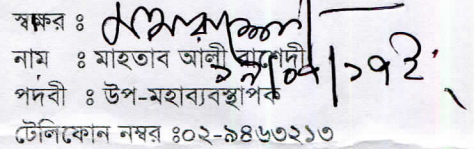 স্বাক্ষর ঃ
নাম ঃ মাহতাব আলী রাশেদী
পদবী ঃ উপ-মহাব্যবস্থাপক
টেলিফোন নম্বর ঃ০২-৯৪৬৩২১৩